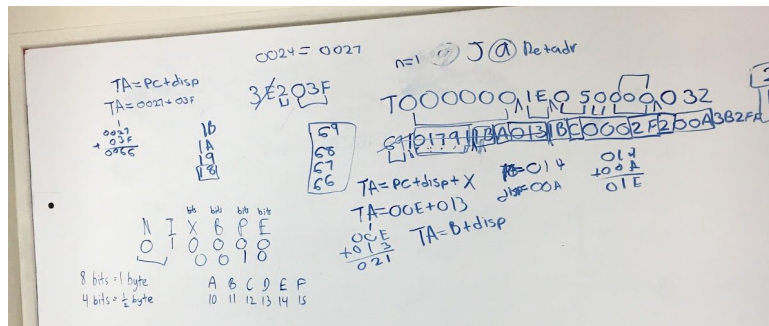 0024 = 0027
n=1 J @ Retadr
TA=PC+disp
TA=0027+03F
3E203F
1
0027
+ 03F
0066
1B
1A
19
18
69
68
67
66
T000000 1E 0500000032
69 01791 BA013 BC0002F200A3B2FA
TA=PC+disp+X
TA=00E+013
00E
+013
021
TA=B+disp
PC=014
disp=00A
014
+00A
01E
bits bits bits bits
N I X B P E
0 1 0 0 0 0
0 0 1 0
8 bits = 1 byte
4 bits = ½ byte
A B C D E F
10 11 12 13 14 15